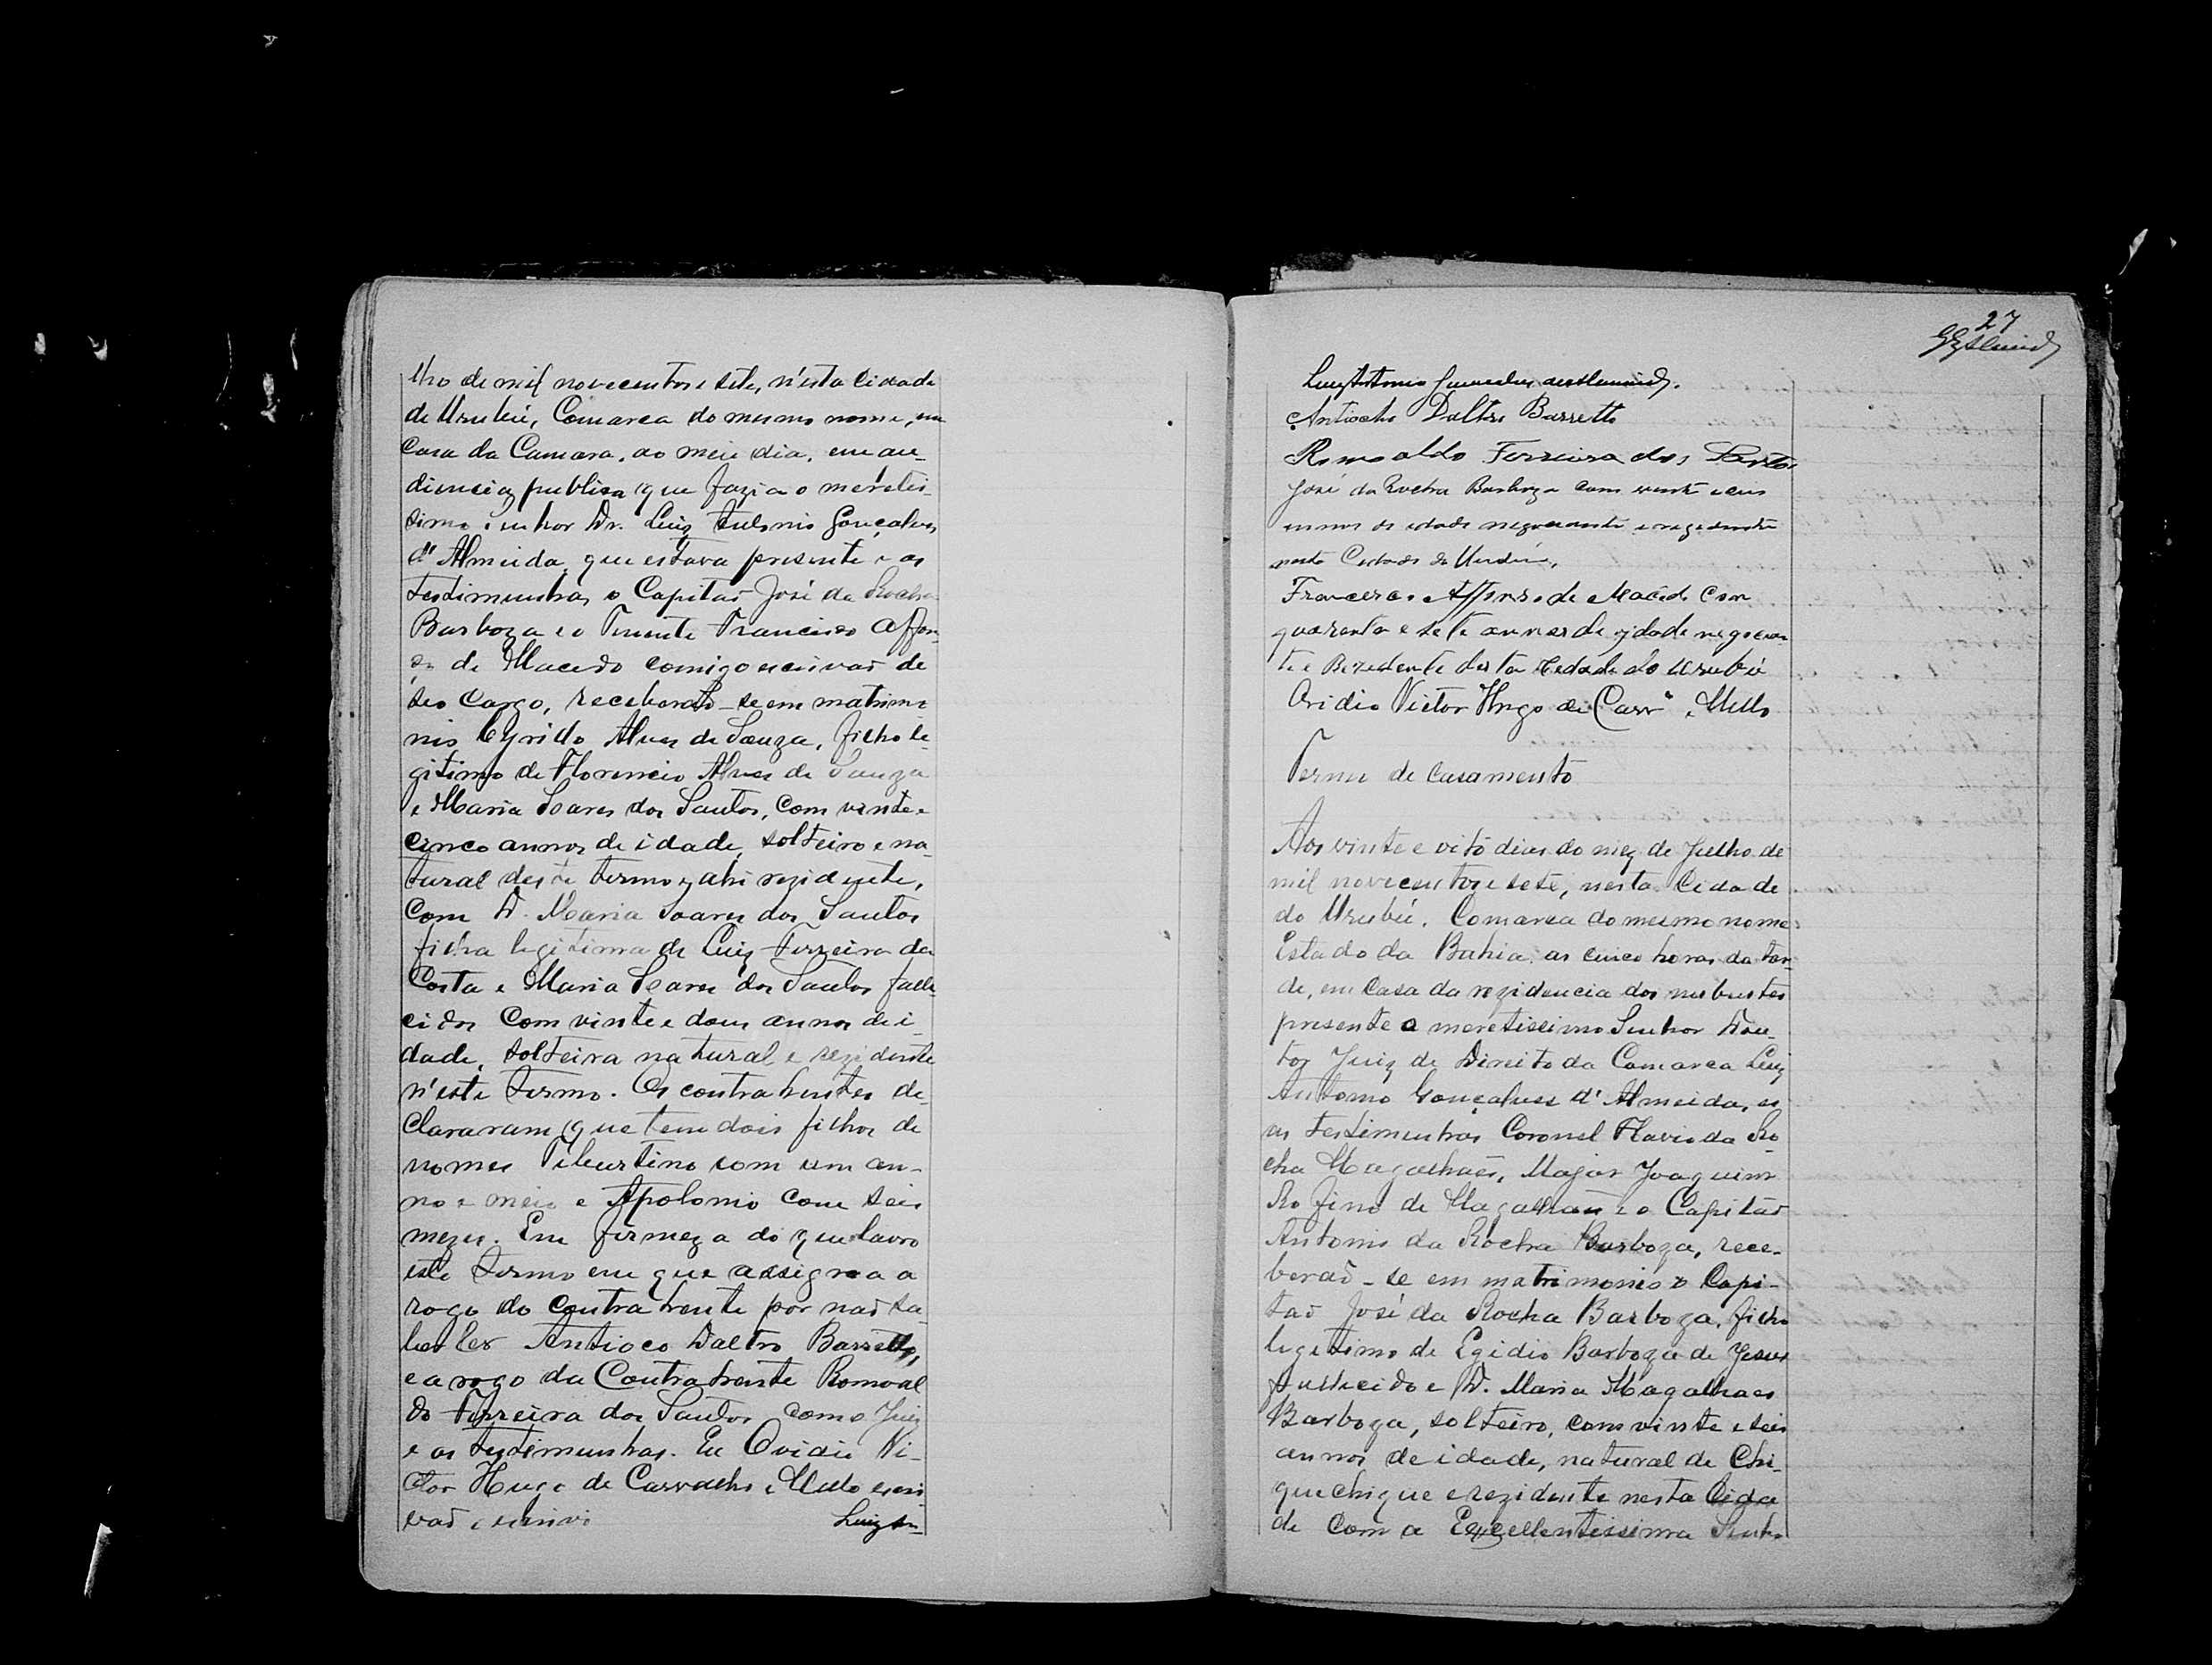 lho de mil novecentos e sete, n'esta Cidade
de Urubú, Comarca do mesmo nome, em
Casa da Camara, ao meio dia, em au-
diencia publica que fazia o meretis-
simo senhor Dr. Luiz Antonio Gonçalves
d'Almeida, que estava presente e as
testimunhas o Capitaõ José da Rocha
Barboza e o Tenente Francisco Affon-
so de Macedo comigo escrivaõ de
seo cargo, receberaõ-se em matrimo
nio Cyrido Alves de Souza, filho le-
gitimo de Florencio Alves de Souza
e Maria Soares dos Santos, com vinte e
cinco annos de idade, solteiro e na-
tural deste termo e ahi rezidente,
com D. Maria Soares dos Santos
filha legitima de Luiz Ferreira da
Costa e Maria Soares dos Santos falle-
cidos com vinte e dous annos de i-
dade, solteira natural e rezidente
n'este termo. Os contrahentes de-
clararam que tem dois filhos de
nomes Tiburtino com um an-
no e meio e Apolonio com seis
mezes. Em firmeza do que lavro
este termo em que assigna a
rogo do contrahente por naõ sa-
ber ler Antioco Daltro Barretto,
e a rogo da Contrahente Romoal
do Ferreira dos Santos como Juiz
e as testimunhas. Eu Ovidio Vi-
ctor Hugo de Carvalho e Mello escri
vaõ escrivi
Luiz An-
27
Luiz Antonio Gonçalves de Almeida.
Antiocho Daltro Barretto
Romoaldo Ferreira dos Santos
José da Rocha Barboza com vinte e seis
annos de idade negociante e rezidente
nesta Cidade do Urubú.
Francisco Affonso de Macêdo Com
quarenta e sete annos de idade negocian
te e Rezidente desta Cedade do Urubú
Ovidio Victor Hugo de Carvº e Mello
Termo de casamento
Aos vinte e oito dias do mez de Julho de
mil novecentos e sete, nesta Cidade
do Urubú, Comarca do mesmo nome
Estado da Bahia as cinco horas da tar-
de, em Casa da rezidencia dos nubentes
presente o meretissimo Senhor Dou-
tor Juiz de Direito da Comarca Luiz
Antonio Gonçalves d'Almeida, e
as testimunhas Coronel Flavio da Ro
cha Magalhaẽs, Major Joaquim
Rofino de Magalhaẽs e o Capitaõ
Antonio da Rocha Barboza, rece-
beraõ-se em matrimonio o Capi-
taõ José da Rocha Barboza, filho
legitimo de Egidio Barboza de Jesus
fallecido e D. Maria Magalhaes
Barboza, solteiro, com vinte e seis
annos de idade, natural de Chi-
quechique e rezidente nesta Cida
de com a Excellentissima Senho